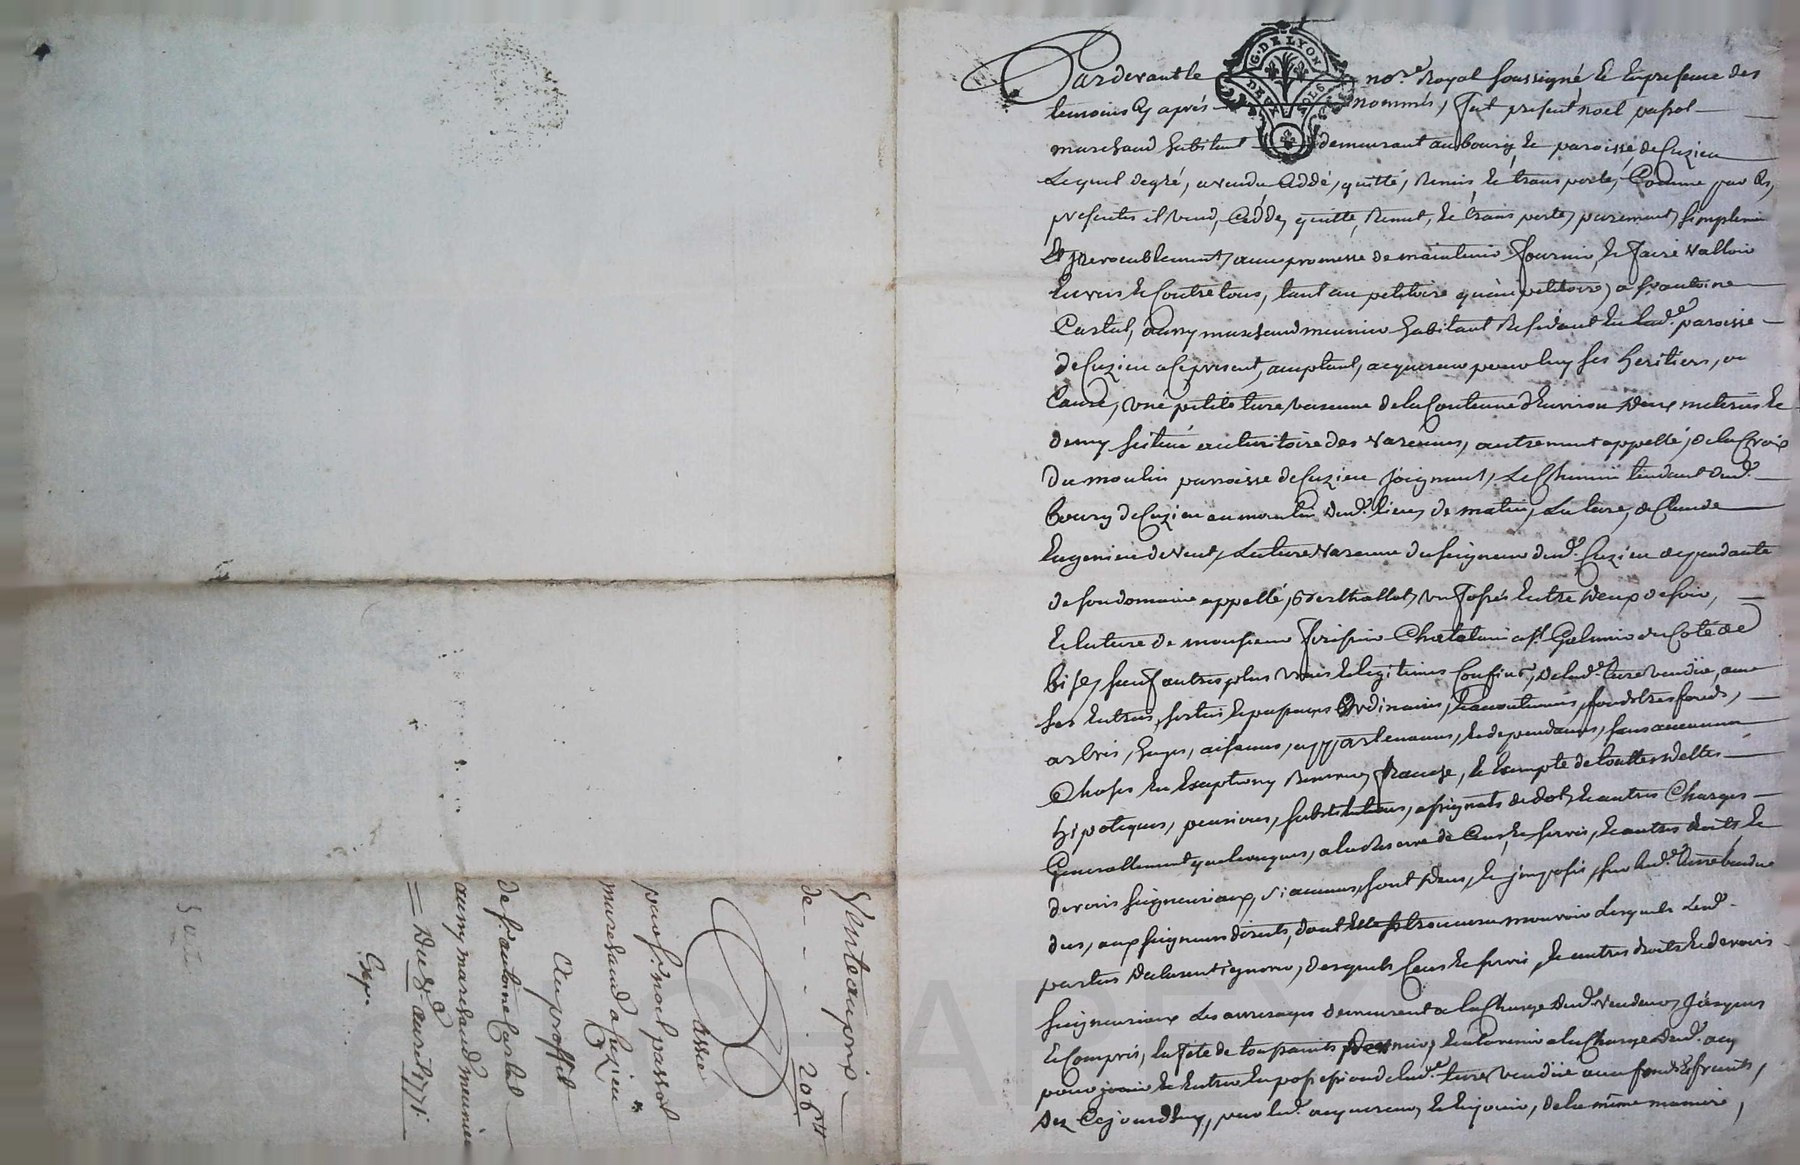 Pardevant le no.re Royal soussigné et en presence des
temoins cy aprés nommés, fut present noel passot
marchand habitant demeurant au bourg et paroisse de Cuzieu
Lequel de gré, a vendu Cddé, quitté, Remis et transporté, Comme par Ces
presentes il vend, Cdde, quitte, Remet, et transporte, purement, simplement
Et Irrevocablement, avec promesse de maintenir fournir, et faire valloir
Envers et Contre tous, tant au petitoire qu'au petitoire, a sr antoine
Castel, aussy marchand meunier habitant Residant en lad.e paroisse
de Cuzieu a Ce present, acceptant, acquereur pour luy ses heritiers, ou
Cause, une petite terre varenne de la Contenue d'Environ deux meterés et
demy scitué au territoire des Varennes, autrement appellé, de la Croix
du moulin parroisse de Cuzieu joignant, Le Chemin tendant dud.
bourg de Cuzieu au moulin dud. lieu, de matin, La terre, de Claude
de vent, La terre varenne du seigneur dud. Cuzieu dependante
de son domaine appellé, Berthollot, un fossés Entre deux de soir,
Et la terre de monsieur Chatelain a st Galmier du Coté de
bize, sauf autres plus vrais et legitimes Confins, de lad.e terre vendüe, avec
ses Entrées, sorties et passages Ordinaires, et accoutumés, fonds tres fonds,
arbres, hayes, aisances, appartenances, et dependances, sans aucunne
Choses En Exceptions Reserves, franche, et Exempte de touttes dettes
hipoteques, pensions, substitutions, assignats de dot, et autres Charges
Generallement quelconques, a la Reserve de Cens et servis, et autres droits et
devoirs seigneuriaux, si aucuns, sont deus, et imposés, sur lad.e terre vendue
dus, aux seigneurs directs, dont Elle se trouvera mouvoir Lesquels Lesd.
parties declarent ignorer, desquels Cens et servis, et autres droits et devoirs
seigneuriaux Les arrerages demeurent a la Charge dud. vendeur, Jusques
et Compris, la fete de toussaints dernier, et a lavenir a la Charge dud. acq
pour jouir et Entrer En possession de lad.e terre vendüe avec fonds et fruits,
Dez Cejourdhuy, par led. acquereur, et En jouir, de la même maniere,
G. DE LYON
DEUX SOLS
Vente au prix
de - - - - 206 tt
passé
par sr. noel passot
marchand a Cuzieu
Au proffit
de sr. antoine Castel
aussy marchand meunier
= Du 8.e avril 1771.
Exp.